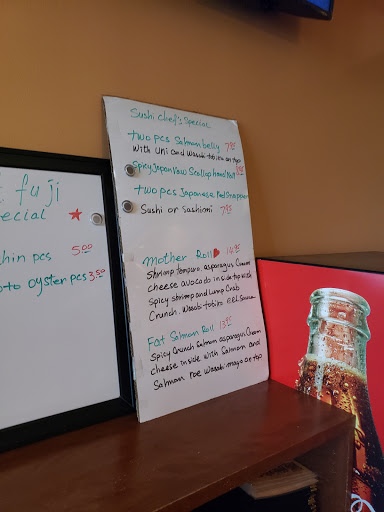 Sushi chef's Special
two pcs Salmon belly 7.95
with Uni and Wasabi tobiko on top
Spicy Japan Raw Scallop Hand Roll
two pcs Japanese Red Snapper
Sushi or Sashimi 7.95
Mother Roll 14.95
Shrimp Tempura, asparagus Cream
cheese avocado inside top with
Spicy shrimp and Lump Crab
Crunch, Wasabi tobiko eel Sauce
Fat Salmon Roll 13.95
Spicy Crunch Salmon asparagus Cream
cheese inside with Salmon and
Salmon roe Wasabi mayo on top
fuji
pecial
hin pcs 5.00
to oyster pcs 3.50